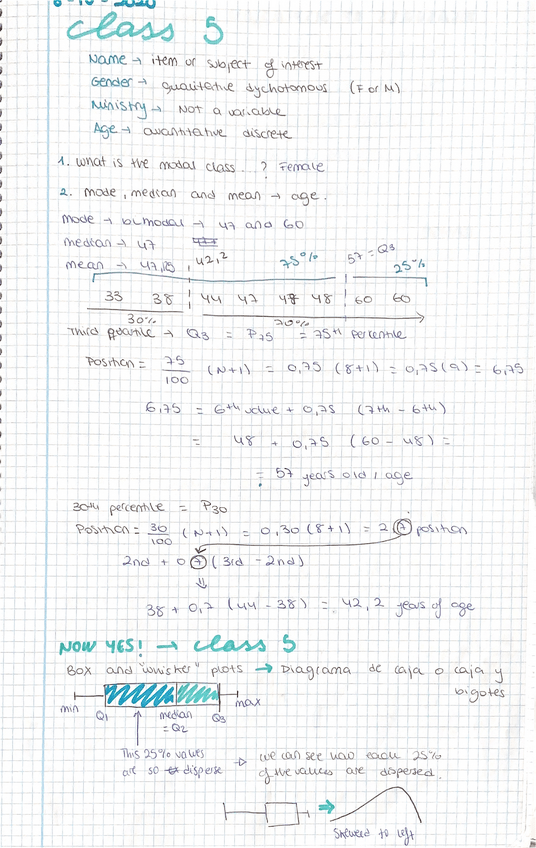 6-10-2020
class 5
Name → item or subject of interest
Gender → qualitative dychotomous (F or M)
Ministry → Not a variable
Age → quantitative discrete
1. what is the modal class...? Female
2. mode, median and mean → age.
mode → bimodal → 47 and 60
median → 47
mean → 47,25
42,2
75%
57 = Q3
25%
33 38 44 47 47 48 60 60
30%
70%
Third quartile → Q3 = P75 = 75th percentile
Position = 75/100 (N+1) = 0,75 (8+1) = 0,75(9) = 6,75
6,75 = 6th value + 0,75 (7th - 6th)
= 48 + 0,75 (60 - 48) =
= 57 years old / age
30th percentile = P30
Position = 30/100 (N+1) = 0,30 (8+1) = 2,7 position
2nd + 0,7 (3rd - 2nd)
⇓
38 + 0,7 (44 - 38) = 42,2 years of age
NOW YES! → class 5
Box and "whisker" plots → Diagrama de caja o caja y
bigotes
min
Q1
median
= Q2
Q3
max
This 25% values
are so disperse
→ we can see how each 25%
of the values are dispersed.
Skewed to left